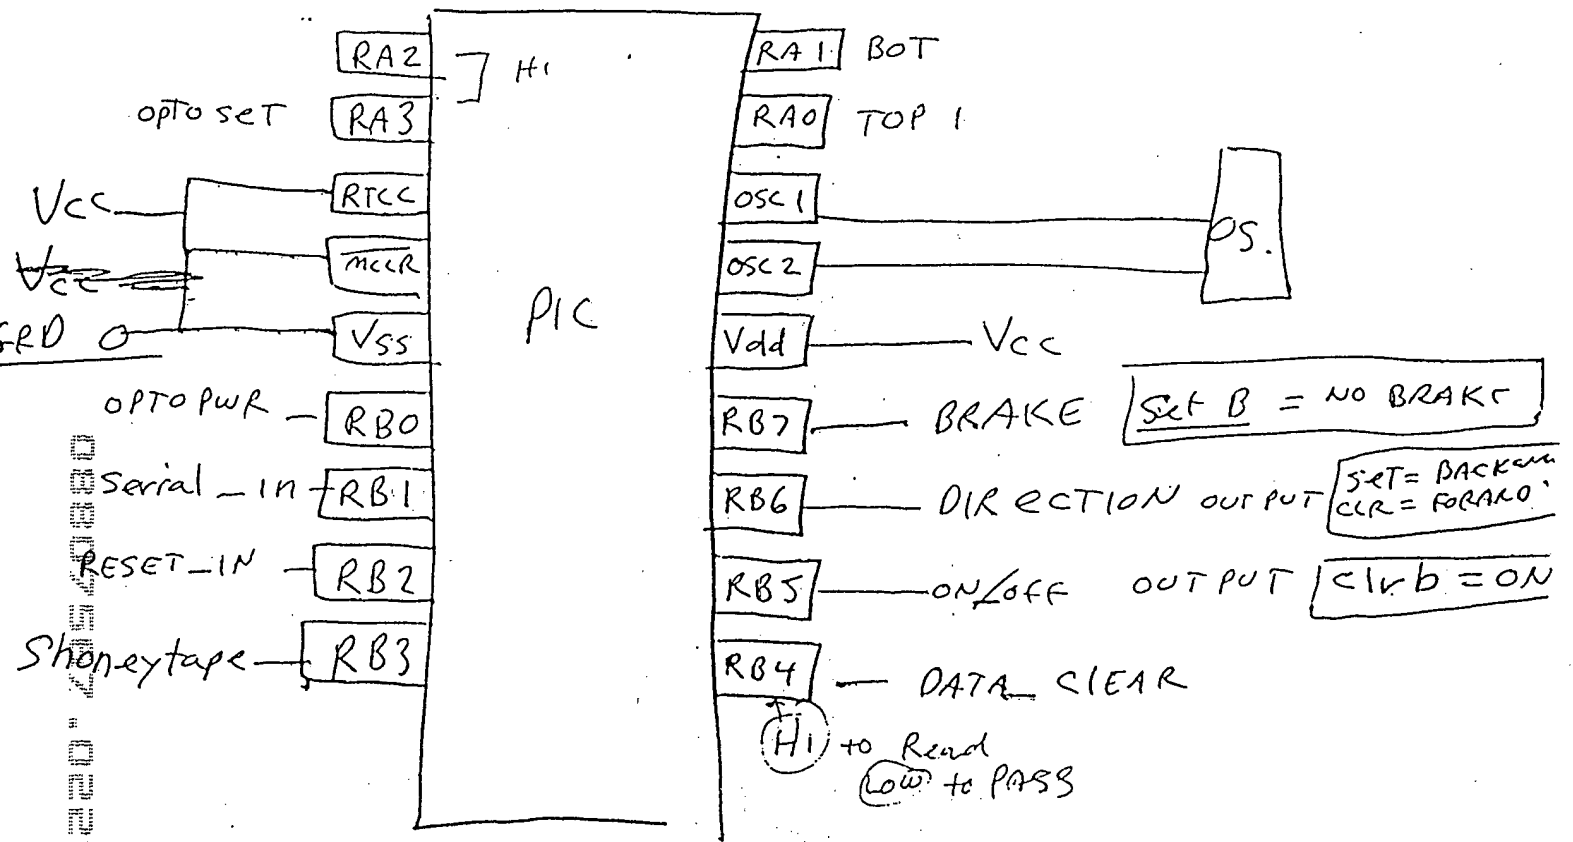 RA2
HI
opto set RA3
Vcc RTCC
Vcc MCLR
GRD VSS
OPTO PWR RB0
Serial_In RB1
RESET_IN RB2
Shoneytape RB3
PIC
RA1 BOT
RA0 TOP 1
OSC1
OSC2
OS.
Vdd VCC
RB7 BRAKE Set B = NO BRAKE
RB6 DIRECTION OUTPUT SET=
CLR =
RB5 ON/OFF OUTPUT clrb = ON
RB4 DATA_CLEAR
Hi to Read
Low to PASS